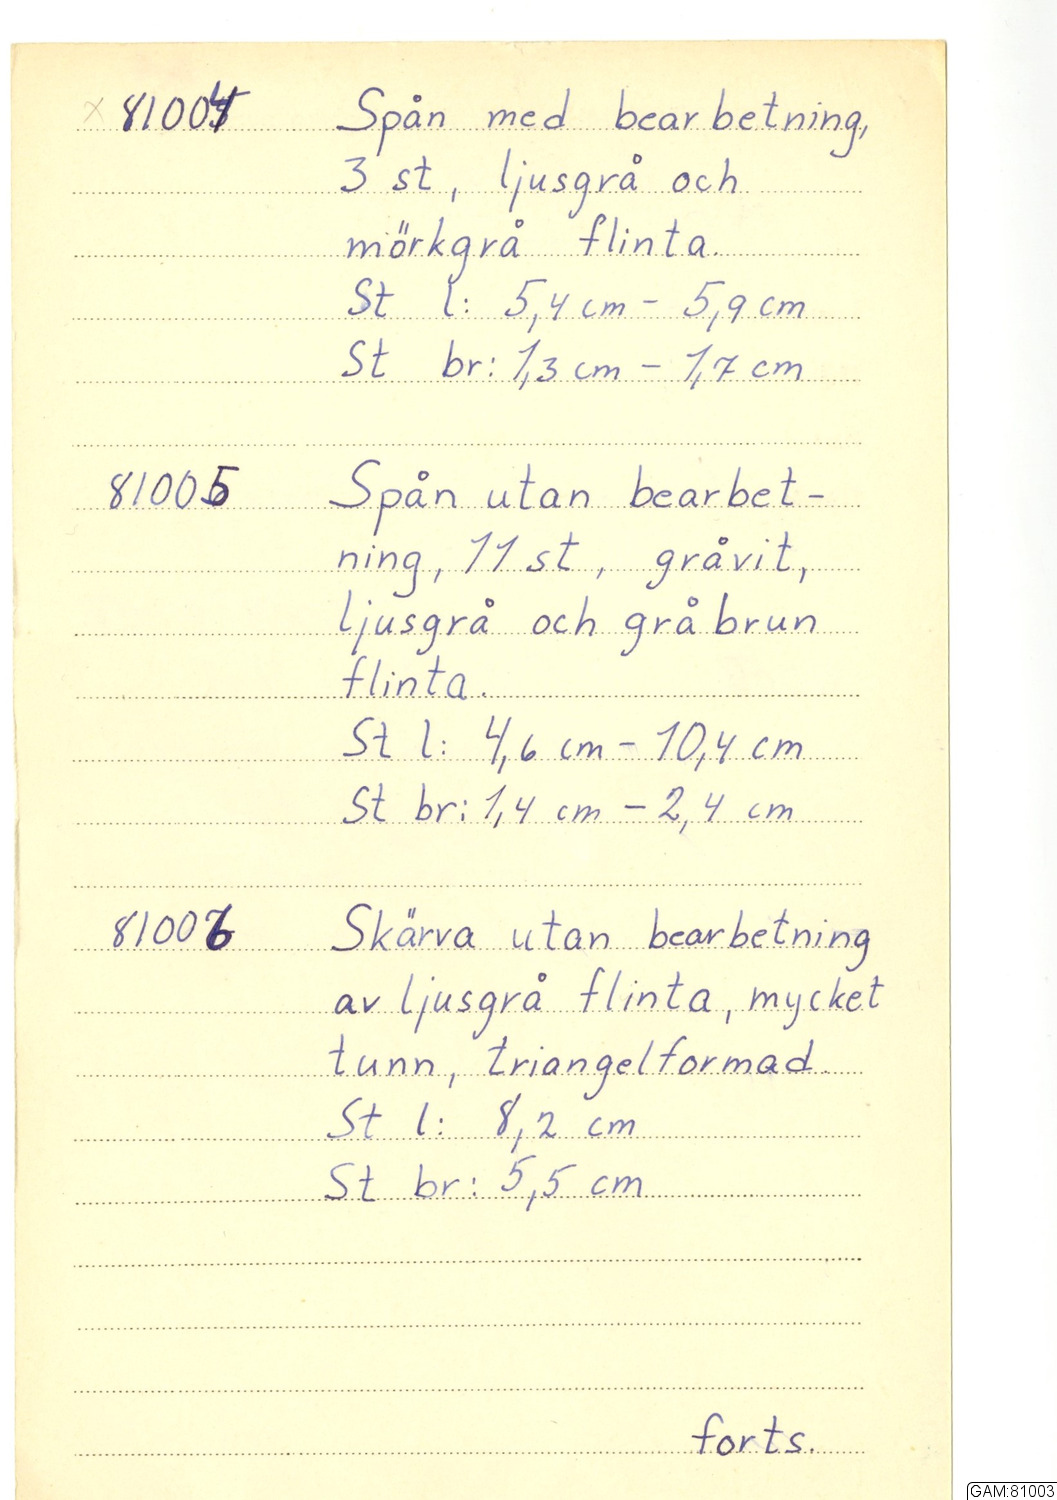 x 81004 Spån med bearbetning,
3 st, ljusgrå och
mörkgrå flinta.
St l: 5,4 cm - 5,9 cm
St br: 1,3 cm - 1,7 cm
81005 Spån utan bearbet-
ning, 11 st, gråvit,
ljusgrå och gråbrun
flinta.
St l: 4,6 cm - 10,4 cm
St br: 1,4 cm - 2,4 cm
81006 Skärva utan bearbetning
av ljusgrå flinta, mycket
tunn, triangelformad.
St l: 8,2 cm
St br: 5,5 cm
forts.
GAM:81003